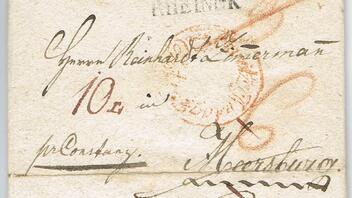 RHEINCK
Herrn Reinhardt Zimmermann
10 in
pr Constanz.
Meersburg.